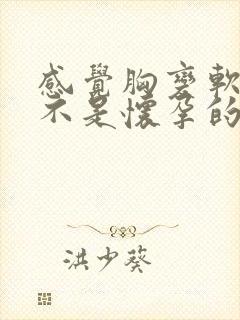 感覺胸變軟
不是懷孕的
洪少葵